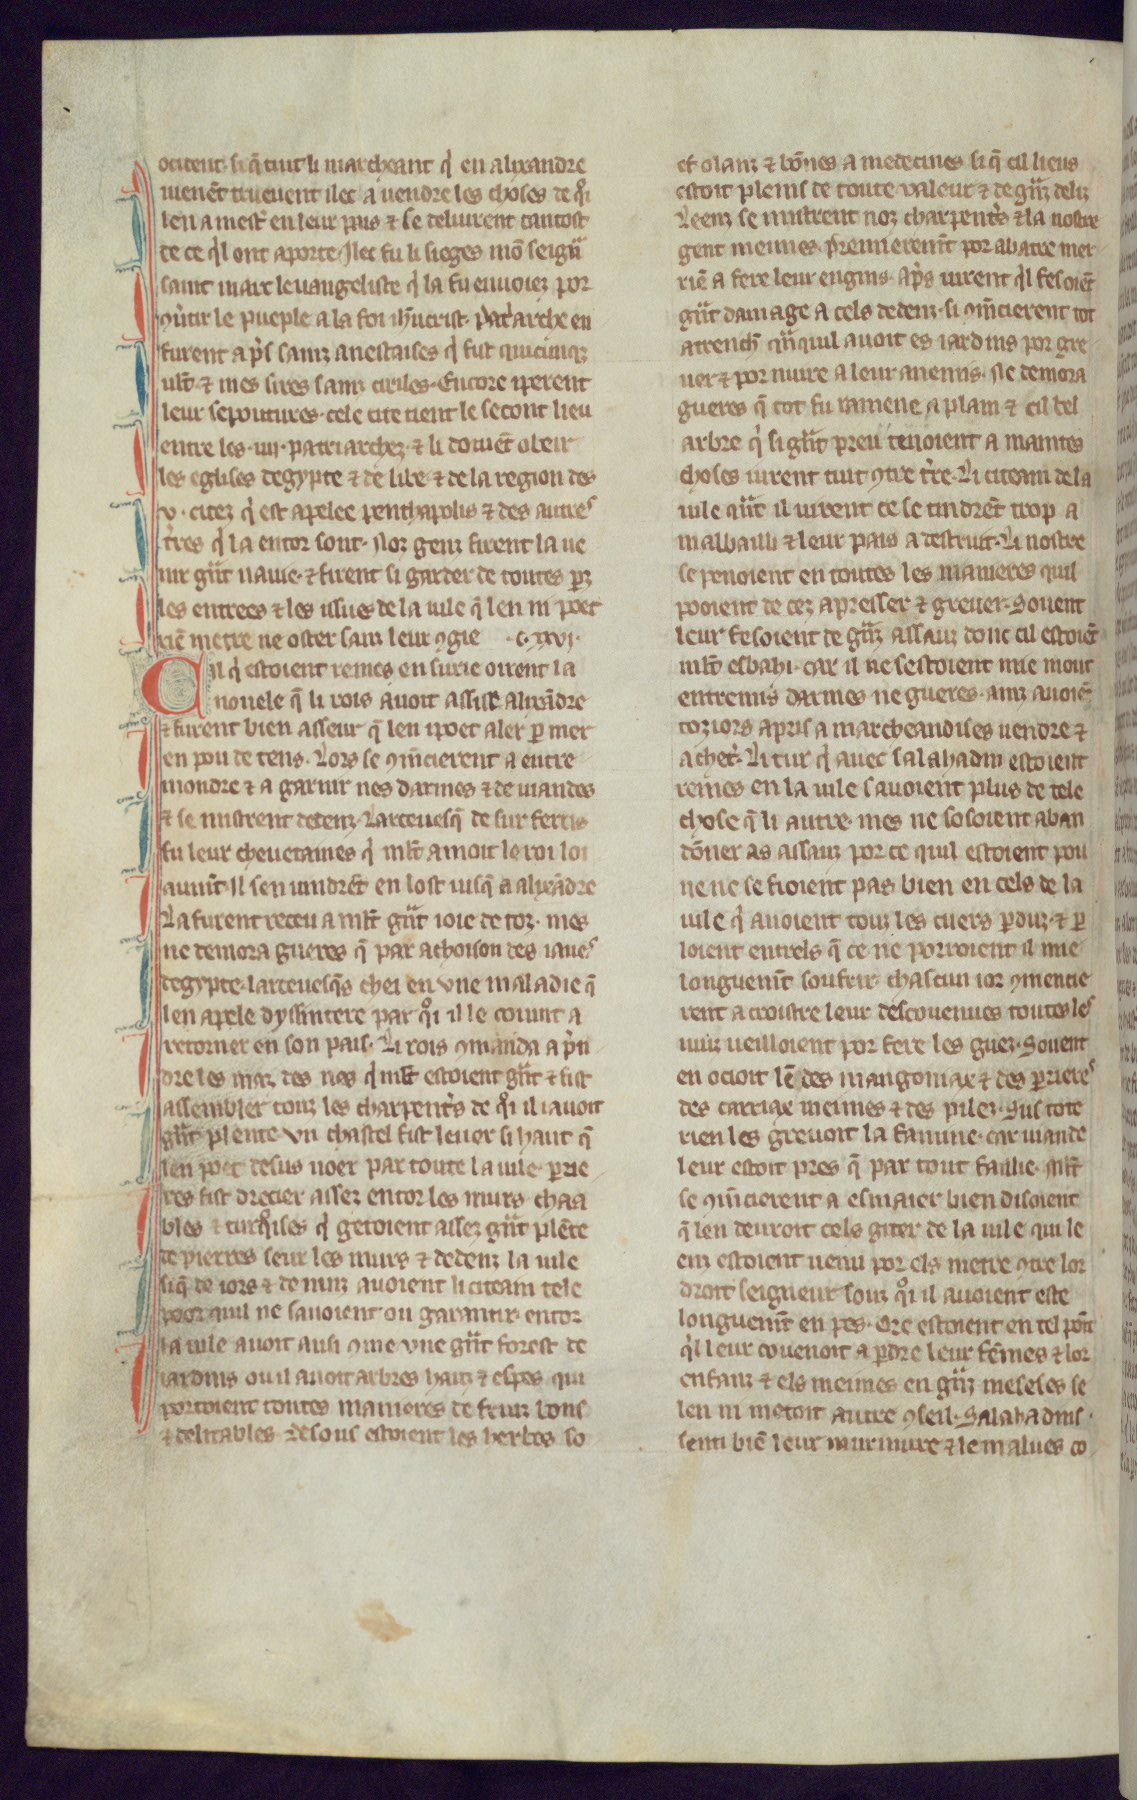 ocident. si q̃ tuit li marcheant q̉ en alixandre
uienẽt truevent ilec a uendre les choses de q̉i
len a mest̉ en leur païs ⁊ se deliurent tantost
de ce q̉l ont aporte. Ilec fu li sieges mõ seign̉
saint marc leuangeliste q̉ la fu enuoiez por
9uertir le pueple a la foi ih̃ucrist. Pat̉arche en
furent ap̉s sainz anestaises q̉ fut
ml̃t ⁊ mes sires sainz cirilles. Encore iperent
leur sepoutures. cele cite tient le secont lieu
entre les .iiij. patriarchez. ⁊ li doiuẽt obeir
les eglises degypte ⁊ de libe ⁊ de la region des
v. citez q̉ est apelee penthapolis ⁊ des autres
t̉res q̉ la entor sont. Noz genz firent la ue
nir gñt nauie. ⁊ firent si garder de toutes pz
les entrees ⁊ les issues de la uile q̃ len ni poet
riẽ metre ne oster sanz leur 9gie .c.xxvi.
Cil q̉ estoient remes en surie oirent la
nouele q̃ li rois auoit assise alixãdre
⁊ furent bien asseur q̃ len ipoet aler p mer
en pou de tens. Lors se 9m̃cierent a entre
mondre ⁊ a garnir nes darmes ⁊ de uiandes
⁊ se mistrent dedenz. Larceuesq̃ de sur ferris
fu leur cheuetaines q̉ ml̃t amoit le roi loi
aumt̃. Il sen uindrẽt en lost iusq̃ a alixãdre
La furent receu a ml̃t gñt ioie de toz. mes
ne demora gueres q̃ par achoison des iaues
degypte. larceuesq̃s chei en vne maladie q̃
len apele dyssintere par q̉i il le couint a
retorner en son pais. Li rois 9manda a p̉n
dre les maz des nes q̉ ml̃t estoient gñt ⁊ fist
assembler touz les charpent̉s de q̉i il i auoit
gñt plente vn chastel fist leuer si haut q̃
len poet desus uoer par toute la uile. perie
res fist drecier assez entor les murs chaa
bles ⁊ turq̉ises q̉ getoient assez gñt plẽte
de pierres seur les murs ⁊ dedenz la uile
siq̃ de iors ⁊ de nuiz auoient li citeain tele
poor quil ne sauoient ou garantir. entor
la uile auoit ausi 9me vne gñt forest de
iardins ou il auoit arbres hauz ⁊ espes qui
portoient toutes manieres de fruiz bons
⁊ delitables. desous estoient les herbes so
ef olanz ⁊ bõnes a medecines si q̃ cil lieus
estoit pleins de toute valeur ⁊ de gñz deliz
Leenz se mistrent noz charpent̉s ⁊ la nostre
gent meimes. premierem̃t por abatre mer
riẽ a fere leur engins. ap̉s uirent q̉l fesoiẽt
gñt damage a cels dedenz. si 9m̃cierent tot
a trench̉ qñquil auoit es iardins por gre
uer ⁊ por nuire a leur anemis. Ne demora
gueres q̃ tot fu ramene a plain ⁊ cil bel
arbre q̉ si gñt preu tenoient a maintes
choses iurent tuit 9tre t̉re. Li citeain de la
uile qñt il uirent ce se tindrẽt trop a
malbailli ⁊ leur pais a destruit. Li nostre
se penoient en toutes les manieres quil
pooient de cez apresser ⁊ greuer. Souent
leur fesoient de gñz assauz donc cil estoiẽt
ml̃t esbahi. car il ne sestoient mie mout
entremis darmes ne gueres. ainz auoiẽt
toz iors apris a marcheandises uendre ⁊
achet̉. Li tur q̉ auec salahadin estoient
remes en la uile sauoient plus de tele
chose q̃ li autre. mes ne sosoient aban
dõner as assauz por ce quil estoient pou
ne ne se fioient pas bien en cels de la
uile q̉ auoient touz les cuers pduz. ⁊ p
loient entrels q̃ ce ne porroient il mie
longuem̃t soufrir. chascun ior 9mencie
rent a croistre leur descouenues toutes les
nuiz ueilloient por fere les guez. Souent
en ocioit lẽ des mangoniax ⁊ des perieres
des carriax meimes ⁊ des pilez. Sus tote
rien les greuoit la famine. car uiande
leur estoit pres q̃ par tout faillie. Ml̃t
se 9m̃cierent a esmaier bien disoient
q̃ len deuroit cels giter de la uile qui le
enz estoient uenu por els metre 9tre lor
droit seigneur souz q̉i il auoient este
longuem̃t en pes. Ore estoient en tel point
q̉l leur couenoit a pdre leur fẽmes ⁊ lor
enfanz ⁊ els meimes en gñz meseses se
len ni metoit autre 9seil. Salahadins
senti biẽ leur murmure ⁊ le malues co